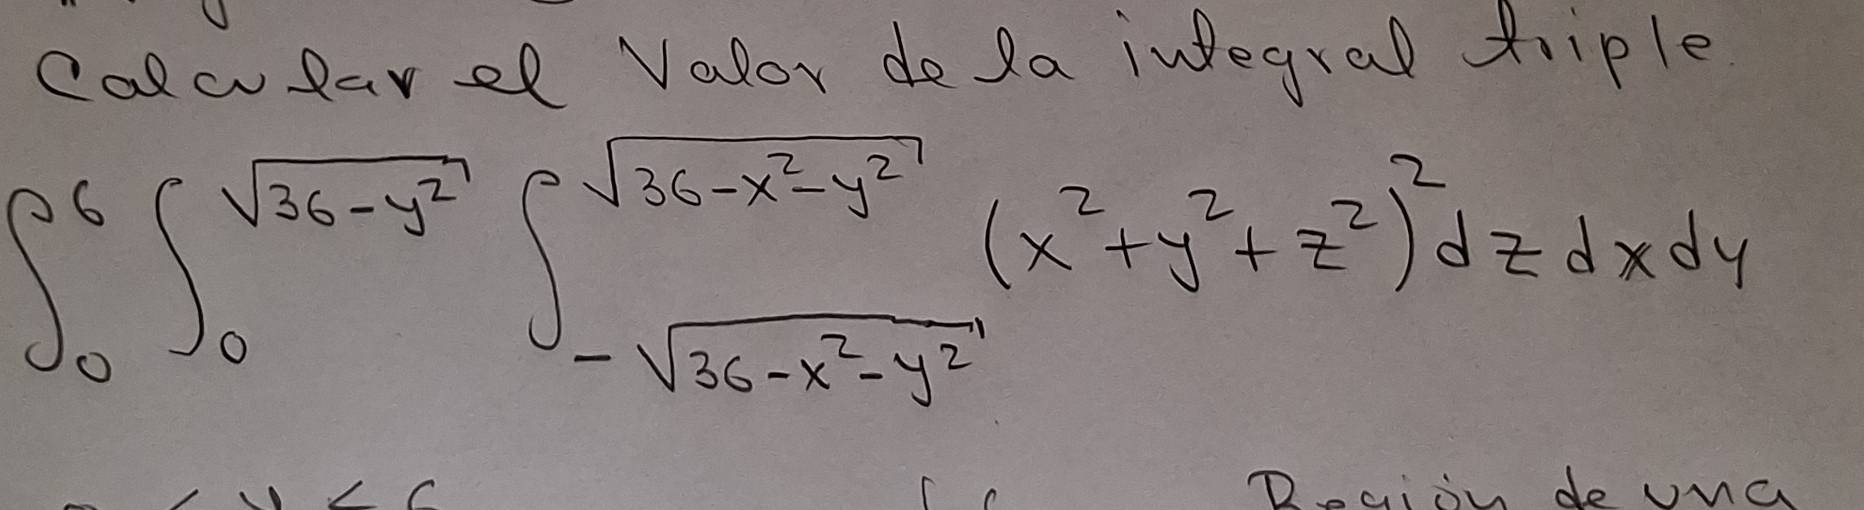 Calcular el Valor de la integral triple.
∫₀⁶ ∫₀^√(36-y²) ∫_{-√(36-x²-y²)}^{√(36-x²-y²)} (x²+y²+z²)² dz dx dy
Región de una